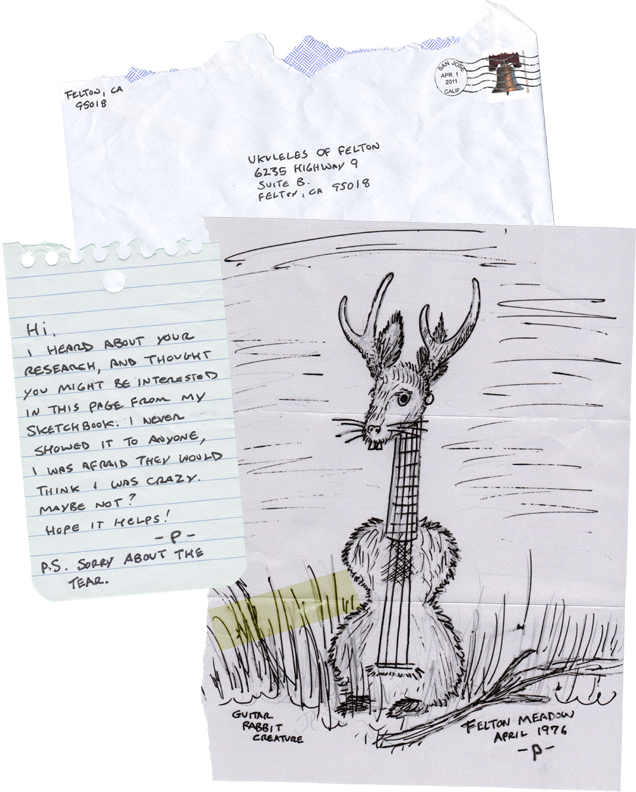 FELTON, CA
95018
SAN JOSE
APR. 1
2011
CALIF
UKULELES OF FELTON
6235 HIGHWAY 9
SUITE B.
FELTON, CA 95018
Hi,
I HEARD ABOUT YOUR
RESEARCH, AND THOUGHT
YOU MIGHT BE INTERESTED
IN THIS PAGE FROM MY
SKETCHBOOK. I NEVER
SHOWED IT TO ANYONE,
I WAS AFRAID THEY WOULD
THINK I WAS CRAZY.
MAYBE NOT?
HOPE IT HELPS!
-P-
P.S. SORRY ABOUT THE
TEAR.
GUITAR
RABBIT
CREATURE
FELTON MEADOW
APRIL 1976
-P-